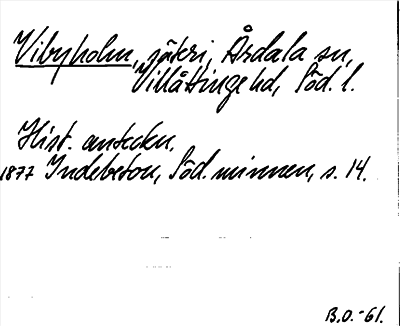 Vibyholm, säteri, Årdala sn,
Villåttinge hd, Söd. l.
Hist. anteckn.
1877 Indebetou, Söd. minnen, s. 14.
B.O.-61.